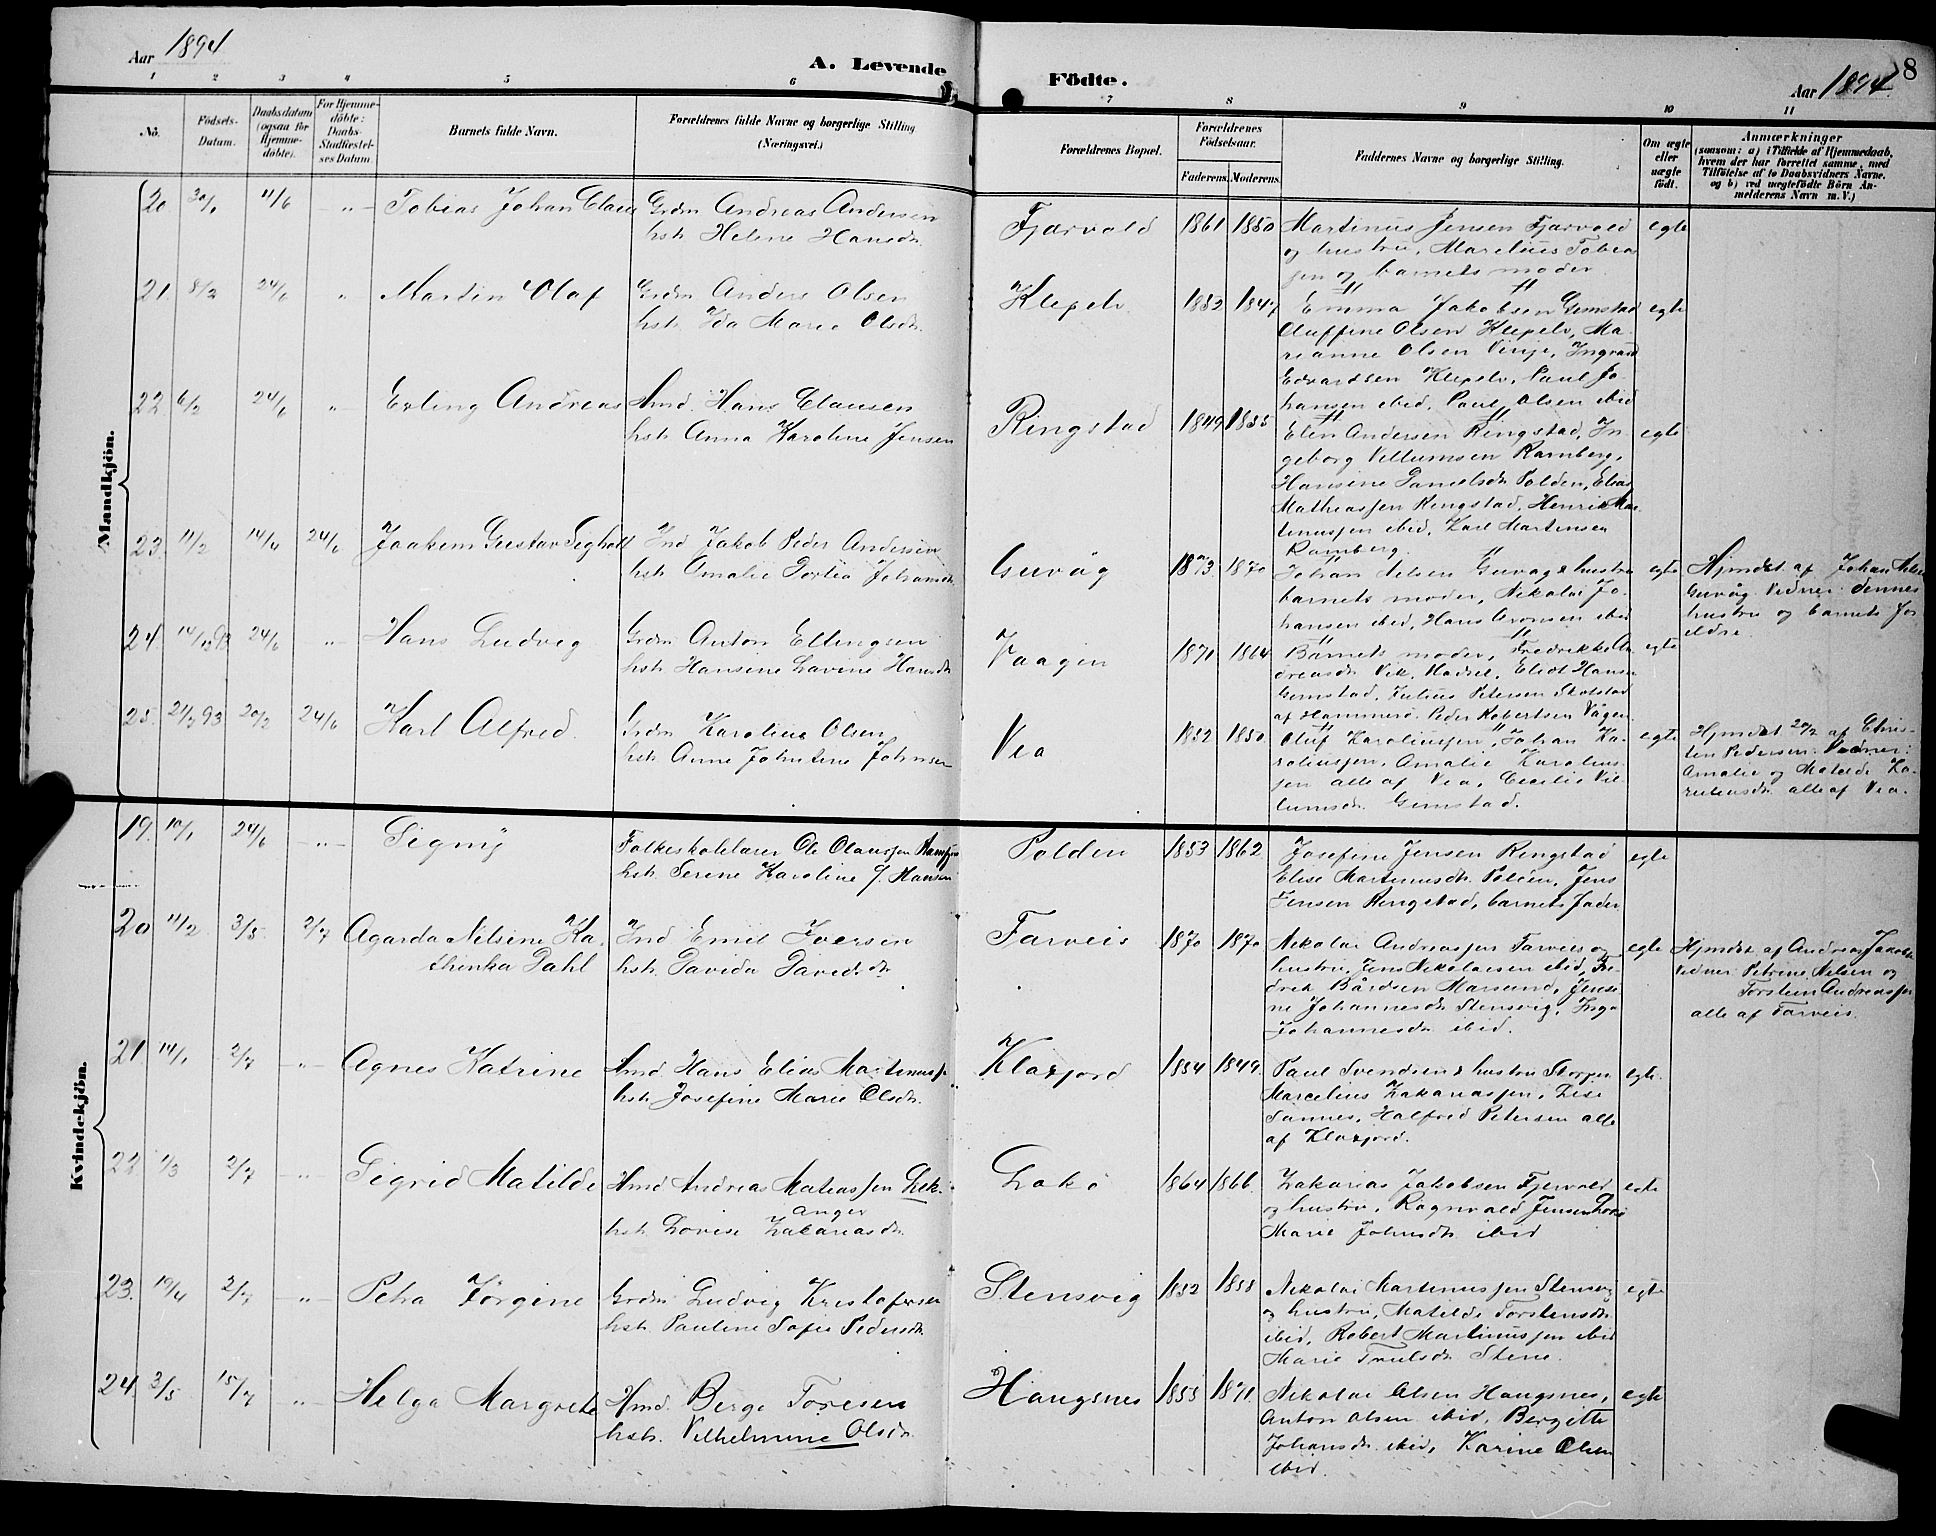 Aar 1894
A. Levende
Födte.
Aar 1894.
8
1 2 3 4 5 6 7 8 9 10 11
No.
Födsels-
Datum.
Daabsdatum
(ogsaa for
Hjemme-
döbte).
For Hjemme-
döbte:
Daabs-
Stadfæstel-
ses Datum.
Barnets fulde Navn.
Forældrenes fulde Navne og borgerlige Stilling
(Næringsvei.)
Forældrenes Bopæl.
Forældrenes
Födselsaar.
Faderens. Moderens.
Faddernes Navne og borgerlige Stilling.
Om ægte
eller
uægte
födt.
Anmærkninger
(saasom: a) i Tilfælde af Hjemmedaab,
hvem der har forrettet samme, med
Tilföielse af to Daabsvidners Navne.
og b) ved uægtefödte Börn An-
melderens Navn m. V.)
Mandkjön.
20. 30/1 11/6 -"- Tobias Johan Claus
Grdm Andreas Andersen
hstr Helene Hansdtr
Fjærvold 1861 1850
Martinus Jensen Fjærvold
og hustru, Marelius Tobias
sen og barnets moder
egte
21. 8/2 24/6 " Martin Olaf
Grdm Anders Olsen
hstr Ida Marie Olsdtr
Klepelv 1852 1847
Emma Jakobsen Gimstad
Oluffine Olsen Klepelv, Ma-
rianne Olsen Vinje, Ingvard
Edvardsen Klepelv, Paul Jo
hansen ibid, Paul Olsen ibid
egte
22 6/2 24/6 " Erling Andreas
Hans Clausen
hstr Anna Karoline Jensen
Ringstad 1849 1855
Elen Andersen Ringstad, In
geborg Villumsen Ramberg,
Hansine Danielsdtr Polden, Elias
Mathiassen Ringstad, Henrik Mar
tinussen ibid, Karl Martinsen
Ramberg.
egte
23. 11/2 14/4 24/6 Joakim Gustav
Ind Jakob Peder Andersen
hstr Amalie Dortea Johansdtr
Guvåg 1873. 1870
Johan Nilsen Guvåg & hustru
barnets moder, Nikolai Jo
hansen ibid, Hans Aronsen ibid
egte
Hjmdbt af Johan Nilsen
Guvåg. Vidner: dennes
hustru og barnets for
eldre.
24. 24/6 " Hans Ludvig
Grdm Anton Ellingsen
hstr Hansine Lavine Hansdtr
Vaagen 1871 1864
Barnets moder, Fredrikke An
dreasdtr Vik, Hadsel, Hansen
Gimstad, Julius Petersen Skotstad
af Hammerö. Peder Robertsen Vågen
egte
25. 93 20/2 24/6 Karl Alfred.
Grdm Karolius Olsen
hstr Anne Johnsen
Vea 1852 1850
Oluf Karoliussen, Johan Ka-
roliussen, Amalie Karolius-
sen alle af Vea, Cecilie Vil-
lumsdtr Gimstad.
egte
Hjmdbt 20/2 af Chris-
ten Pedersen. Vidner:
Amalie og Matilde Ka-
alle af Vea.
Kvindekjön.
19. 10/1 24/6 -"- Signy
Folkeskolelærer Ole Olaussen
hstr Serine Karoline Hansen
Polden 1853 1862
Josefine Jensen Ringstad
Elise Martinusdtr Polden, Jens
Jensen Ringstad, barnets fader
egte
20 11/2 3/5 2/7 Agarda Nilsine Ka
thinka Dahl
Ind Emil Iversen
hstr Davida Davidsdtr
Farveis 1870 1870
Nikolai Andreassen Farveis og
hustru, Jens Nikolaisen ibid, Fre-
drik Bårdsen Marsund, Jensi
ne Johannesdtr Stensvig, Inga
Johannesdtr ibid.
egte
Hjmdbt af Andreas
Vidner: Petrine Nilsen og
Torstein Andreassen
alle af Farveis.
21. 14/1 2/7 -"- Agnes Katrine
Hans Elias Martinussen
hstr Josefine Marie Olsdtr
Klaxjord 1854 1849.
Paul Svendsen & hustru
Marcelius Zakariassen, Lise
Sannes, Halfred Petersen alle
af Klaxjord.
egte.
22 1/3 2/7 -"- Sigrid Matilde
Andreas Matiassen Lek-
anger
hstr Lovise Zakariasdtr
Lakö 1864 1866.
Zakarias Jakobsen Fjervold
og hustru, Ragnvald Jensen
Marie Johnsdtr ibid
egte
23. 19/4 2/7 -"- Petra Jörgine
Grdm Ludvig Kristofersen
hstr. Pauline Sofie Pedersdtr
Stensvig 1852 1858
Nikolai Martinussen Stensvig
og hustru, Matilde Torstensdtr
ibid, Robert Martinussen ibid
Marie Trulsdtr Stene.
egte
24. 3/5 15/7 -"- Helga Margrete
Berge Toresen
hstr. Vilhelmine Olsdtr
Haugsnes 1855 1871.
Nikolai Olsen Haugsnes,
Anton Olsen ibid, Bergitte
Johansdtr ibid, Karine Olsen
ibid.
egte